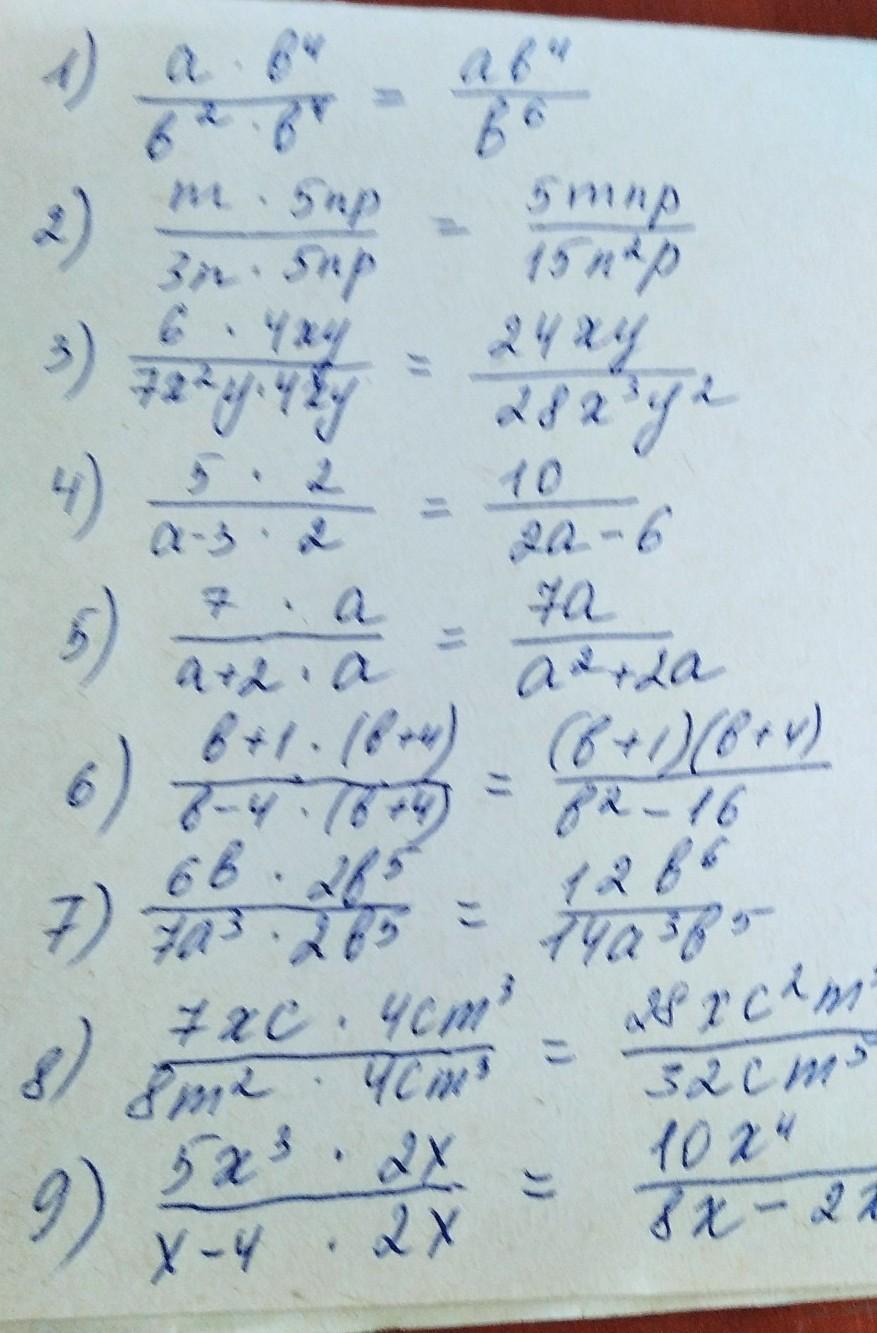 1) a · b⁴ / b² · b⁴ = ab⁴ / b⁶
2) m · 5np / 3n · 5np = 5mnp / 15n²p
3) 6 · 4xy / 7x²y · 4xy = 24xy / 28x³y²
4) 5 · 2 / a-3 · 2 = 10 / 2a-6
5) 7 · a / a+2 · a = 7a / a²+2a
6) b+1 · (b+4) / b-4 · (b+4) = (b+1)(b+4) / b²-16
7) 6b · 2b⁵ / 7a³ · 2b⁵ = 12b⁶ / 14a³b⁵
8) 7xc · 4cm³ / 8m² · 4cm³ = 28xc²m³ / 32cm⁵
9) 5x³ · 2x / x-4 · 2x = 10x⁴ / 8x-2x